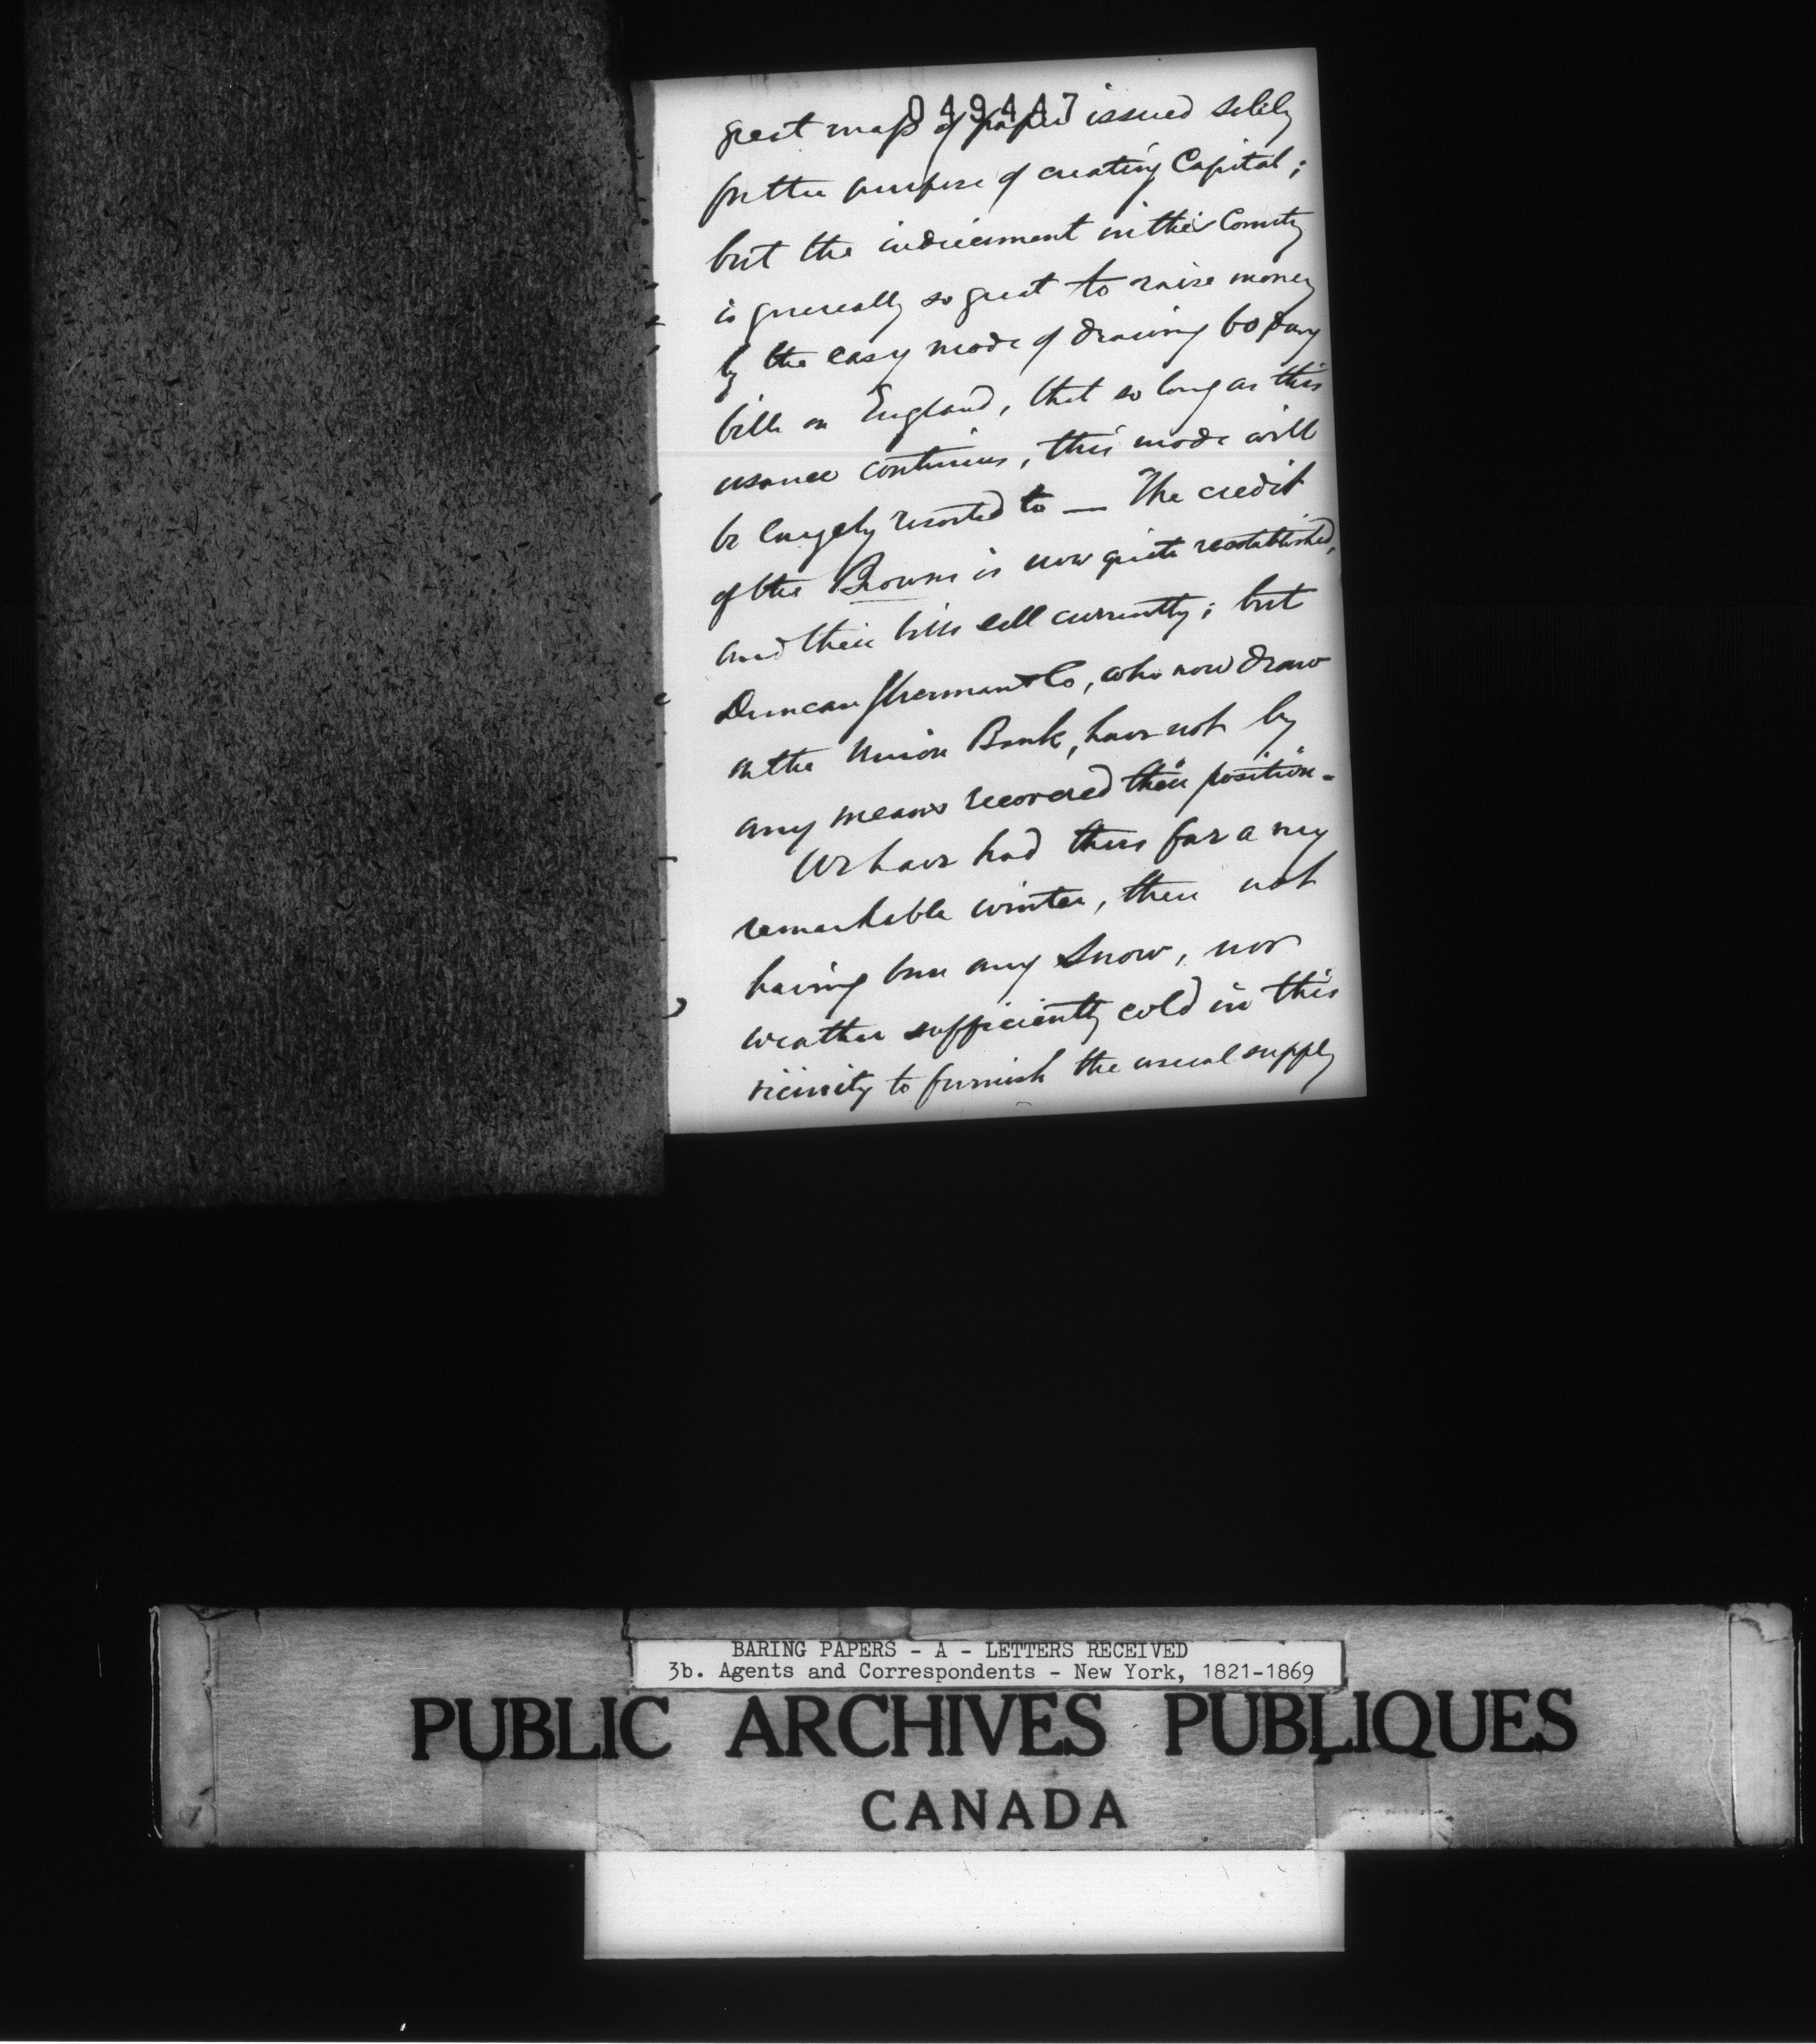 049447
great mass of paper issued solely
for the purpose of creating Capital;
but the inducement in this Country
is generally so great to raise money
by the easy mode of drawing 60 day
bills on England, that so long as this
usance continues, this mode will
be largely resorted to — The credit
of the Browns is now quite reestablished,
and their bills sell currently; but
Duncan Sherman & Co, who now draw
on the Union Bank, have not by
any means recovered their position.
We have had thus far a very
remarkable winter, there not
having been any snow, nor
weather sufficiently cold in this
vicinity to furnish the usual supply
BARING PAPERS - A - LETTERS RECEIVED
3b. Agents and Correspondents - New York, 1821-1869
PUBLIC ARCHIVES PUBLIQUES
CANADA